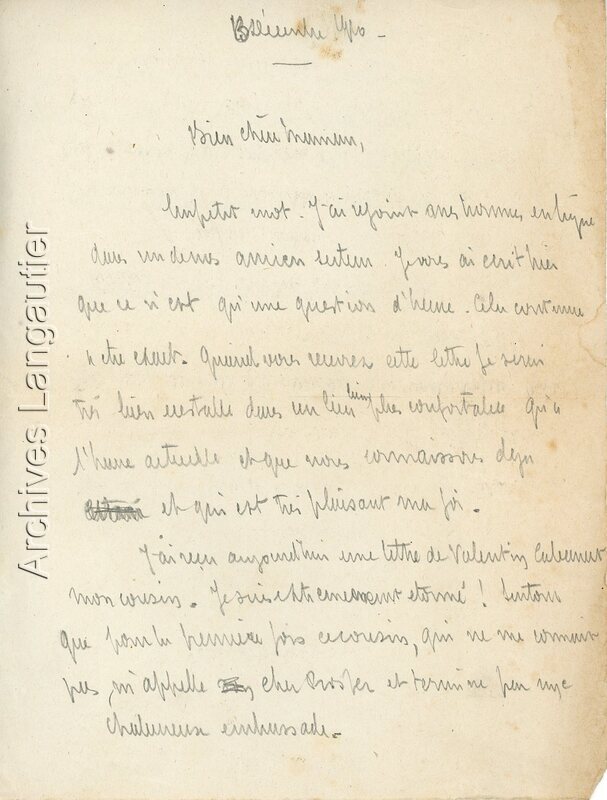 décembre
Bien chère maman,
Un petit mot. J'ai rejoint mes hommes en ligne
dans un de mes anciens secteur. Je vous ai écrit hier
que ce n'est qu'une question d'heure. Cela continue
a être exact. Quand vous recevrez cette lettre je serai
très bien installé dans un lieu bien plus confortable qu'à
l'heure actuelle et que nous connaissons déjà
et qui est très plaisant ma foi.
J'ai reçu aujourd'hui une lettre de Valentin
mon cousin. Je suis extrêmement étonné ! Surtout
que pour la première fois ce cousin, qui ne me connait
pas, m'appelle cher Prosper et termine par une
chaleureuse embrassade.
Archives Langautier